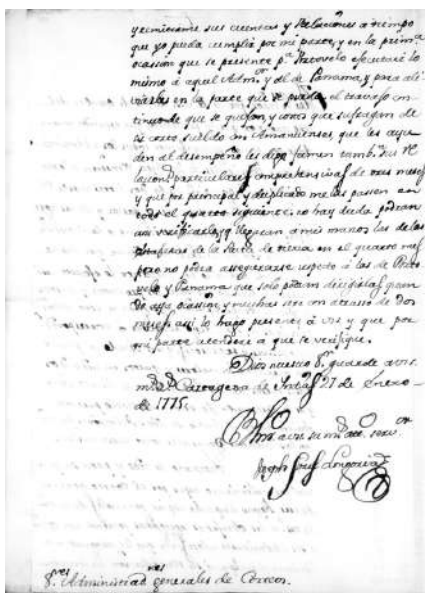 y remitirme sus cuentas y Relaciones a tiempo
que yo pueda cumplir por mi parte, y en la prim.ª
ocasion que se presente p.ª Portovelo executaré lo
mismo á aquel Adm.or y al de Panama, y para ali
viarlos en la parte que se pueda el travajo con
tinuo de que se quejan, y costos que sufragan de
su corto sueldo en Amanuenses, que les ayu
den al desempeño les digo formen tamb.n sus Re
laciones particulares comprehensivas de tres meses
y que por principal y duplicado me las passen en
todo el quarto siguiente, no hay duda podran
asi verificarlas, y lleguen a mis manos las de las
de tierra en el quarto mes
pero no podra assegurarse respecto á los de Porto
velo y Panama que solo podran dirigirlas quan
do aya ocasion, y muchas seran con atraso de dos
meses. asi lo hago presente á vss. y que por
mi parte atenderé á que se verifique.
Dios nuestro S.r guarde a vss.
m.s a.s Cartagena de Indias 27 de Enero
de 1775.
Joseph Luis Longoria
S.res Administrad.res generales de Correos.